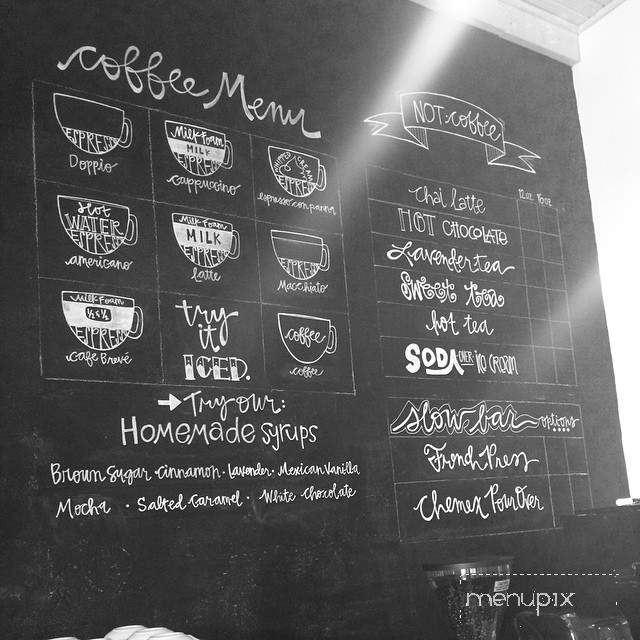 coffee Menu
ESPRESSO
Doppio
Milk Foam
MILK
ESPRESSO
cappuccino
WHIPPED CREAM
ESPRESSO
espresso con panna
Hot
WATER
ESPRESSO
americano
Milk Foam
MILK
latte
ESPRESSO
Macchiato
MILK FOAM
½ & ½
ESPRESSO
Cafe Brevé
try
it
ICED.
coffee
coffee
Try our:
Homemade syrups
Brown Sugar · Cinnamon · Lavender · Mexican Vanilla
Mocha · Salted Caramel · White Chocolate
NOT: coffee
12oz. 16oz.
chai latte
HOT CHOCOLATE
Lavender tea
Sweet tea
hot tea
SODA OVER ICE CREAM
slow bar options
French Press
Chemex Pour Over
menupix